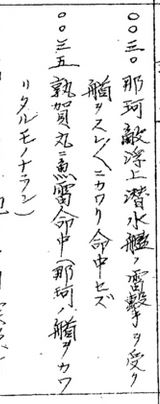 〇〇三〇 那珂敵浮上潜水艦ノ雷撃ヲ受ク
艏ヲスレ〱ニカワリ命中セズ
〇〇三五 敦賀丸ニ魚雷命中(那珂ノ艏ヲカワ
リタルモノナラン)